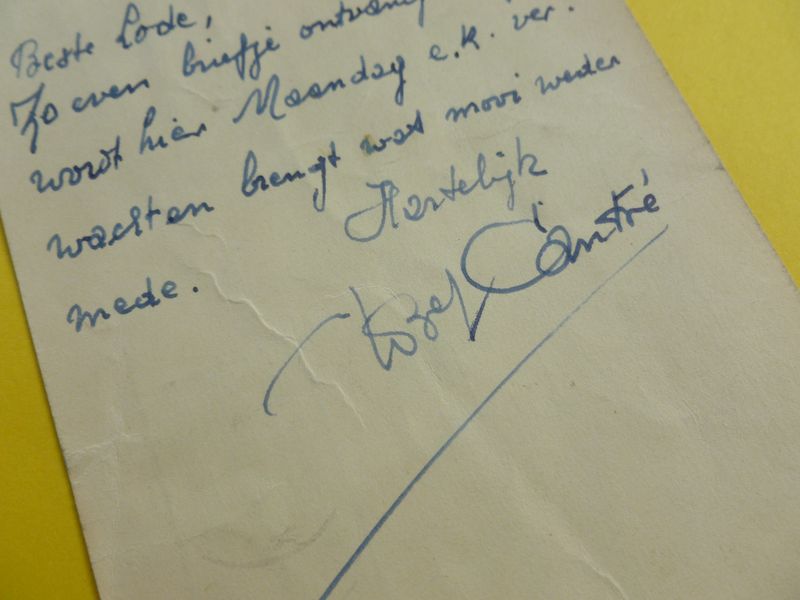 Beste Lode,
Zo even briefje ontvang
wordt hier Maandag e.k. ver.
wachten brengt wat mooi weder
mede.
Hartelijk
Jozef Cantré